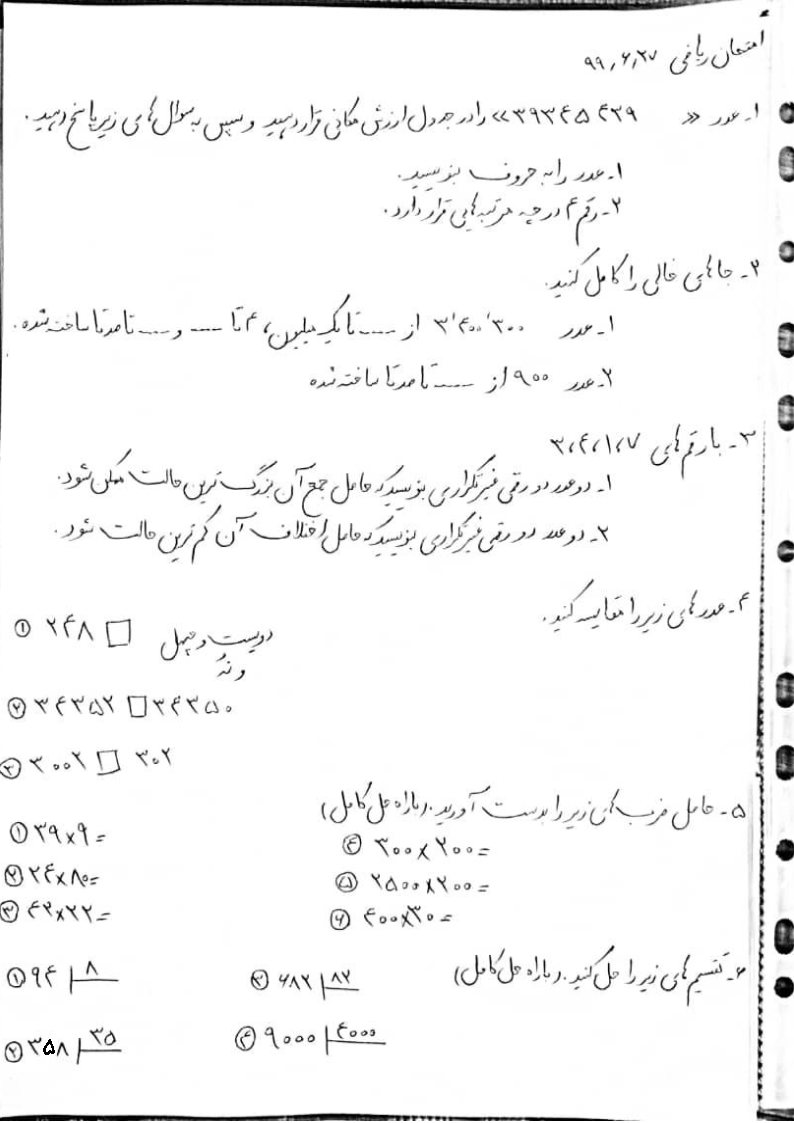 امتحان ریاضی ۹۹,۶,۲۷
۱- عدد « ۳۹۳۴۵۴۳۹» را در جدول ارزش مکانی قرار دهید و سپس به سوال های زیر پاسخ دهید.
۱- عدد را به حروف بنویسید.
۲- رقم ۴ در چه مرتبه هایی قرار دارد.
۲- جاهای خالی را کامل کنید.
۱- عدد ۳'۴۰۰'۳۰۰ از ---- تا یک میلیون، ۴ تا ---- و ---- تا صدتا ساخته شده.
۲- عدد ۹۰۰ از ---- تا صدتا ساخته شده
۳- با رقم های ۳،۴،۱،۷
۱- دو عدد دو رقمی غیر تکراری بنویسید که حاصل جمع آن بزرگ ترین حالت ممکن شود.
۲- دو عدد دو رقمی غیر تکراری بنویسید که حاصل اختلاف آن کم ترین حالت شود.
۴- عدد های زیر را مقایسه کنید.
① ۲۴۸ □ دویست و چهل و نُه
② ۳۴۳۵۲ □ ۳۴۳۵۰
③ ۳۰۰۲ □ ۳۰۲
۵- حاصل ضرب های زیر را بدست آورید. (با راه حل کامل)
① ۳۹×۹=
② ۲۴×۸۰=
③ ۴۲×۲۲=
④ ۳۰۰×۲۰۰=
⑤ ۲۵۰۰×۲۰۰=
⑥ ۴۰۰×۳۰=
۶- تقسیم های زیر را حل کنید. (با راه حل کامل)
① ۹۴ | ۸
② ۳۵۸ | ۳۵
③ ۶۸۲ | ۸۲
④ ۹۰۰۰ | ۴۰۰۰